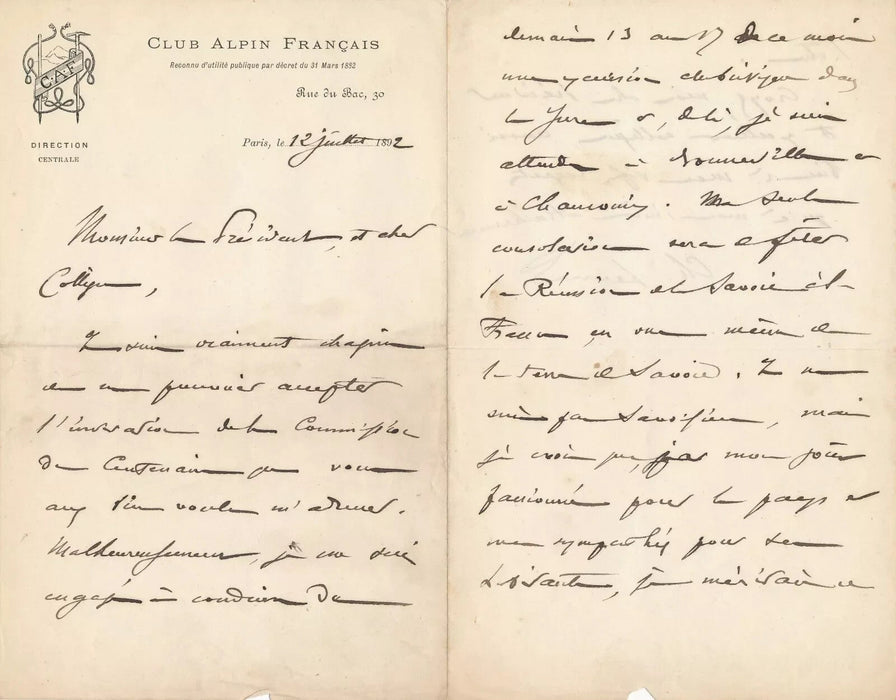 C.A.F.
DIRECTION
CENTRALE
CLUB ALPIN FRANÇAIS
Reconnu d'utilité publique par décret du 31 Mars 1882
Rue du Bac, 30
Paris, le 12 juillet 1892
Monsieur le Président, et cher
Collègue,
Je suis vraiment chagrin
de ne pouvoir accepter
l'invitation de la Commission
du Centenaire que vous
avez bien voulu m'adresser.
Malheureusement, je me suis
engagé à conduire du
demain 13 au 17 de ce mois
une excursion dans
le Jura et, de là, je suis
attendu à Bonneville et
à Chamonix. Ma seule
consolation sera de fêter
la Réunion de la Savoie à la
France en vue même de
la terre de Savoie. Je ne
suis pas Savoisien, mais
je crois que, par mon goût
passionné pour le pays et
ma sympathie pour ses
habitants, je mériterais de